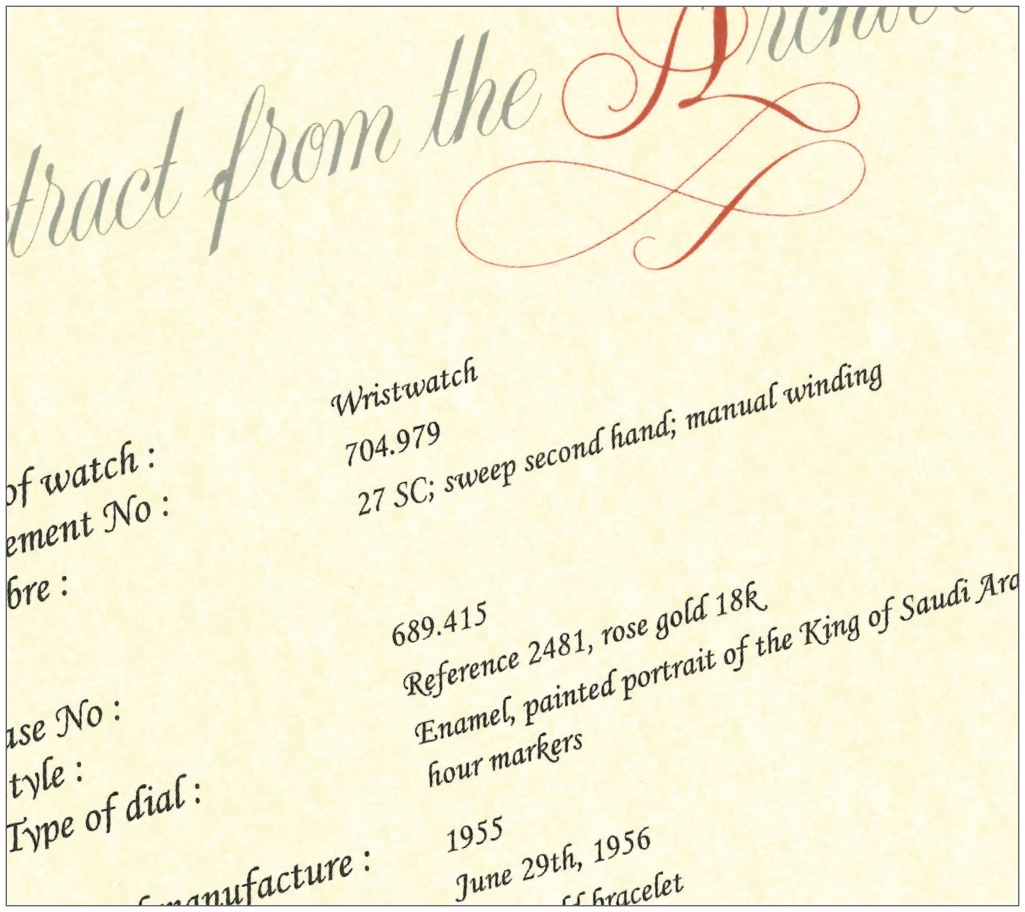 tract from the Archives
of watch : Wristwatch
ement No : 704.979
bre : 27 SC; sweep second hand; manual winding
ase No : 689.415
tyle : Reference 2481, rose gold 18k
Type of dial : Enamel, painted portrait of the King of Saudi Ara
hour markers
manufacture : 1955
June 29th, 1956
bracelet